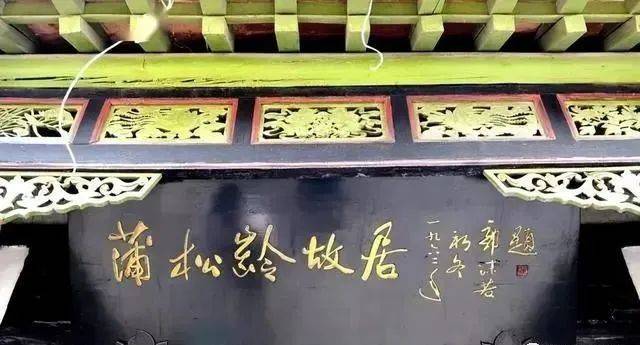 蒲松龄故居
一九六二年
初冬
郭沫若
題